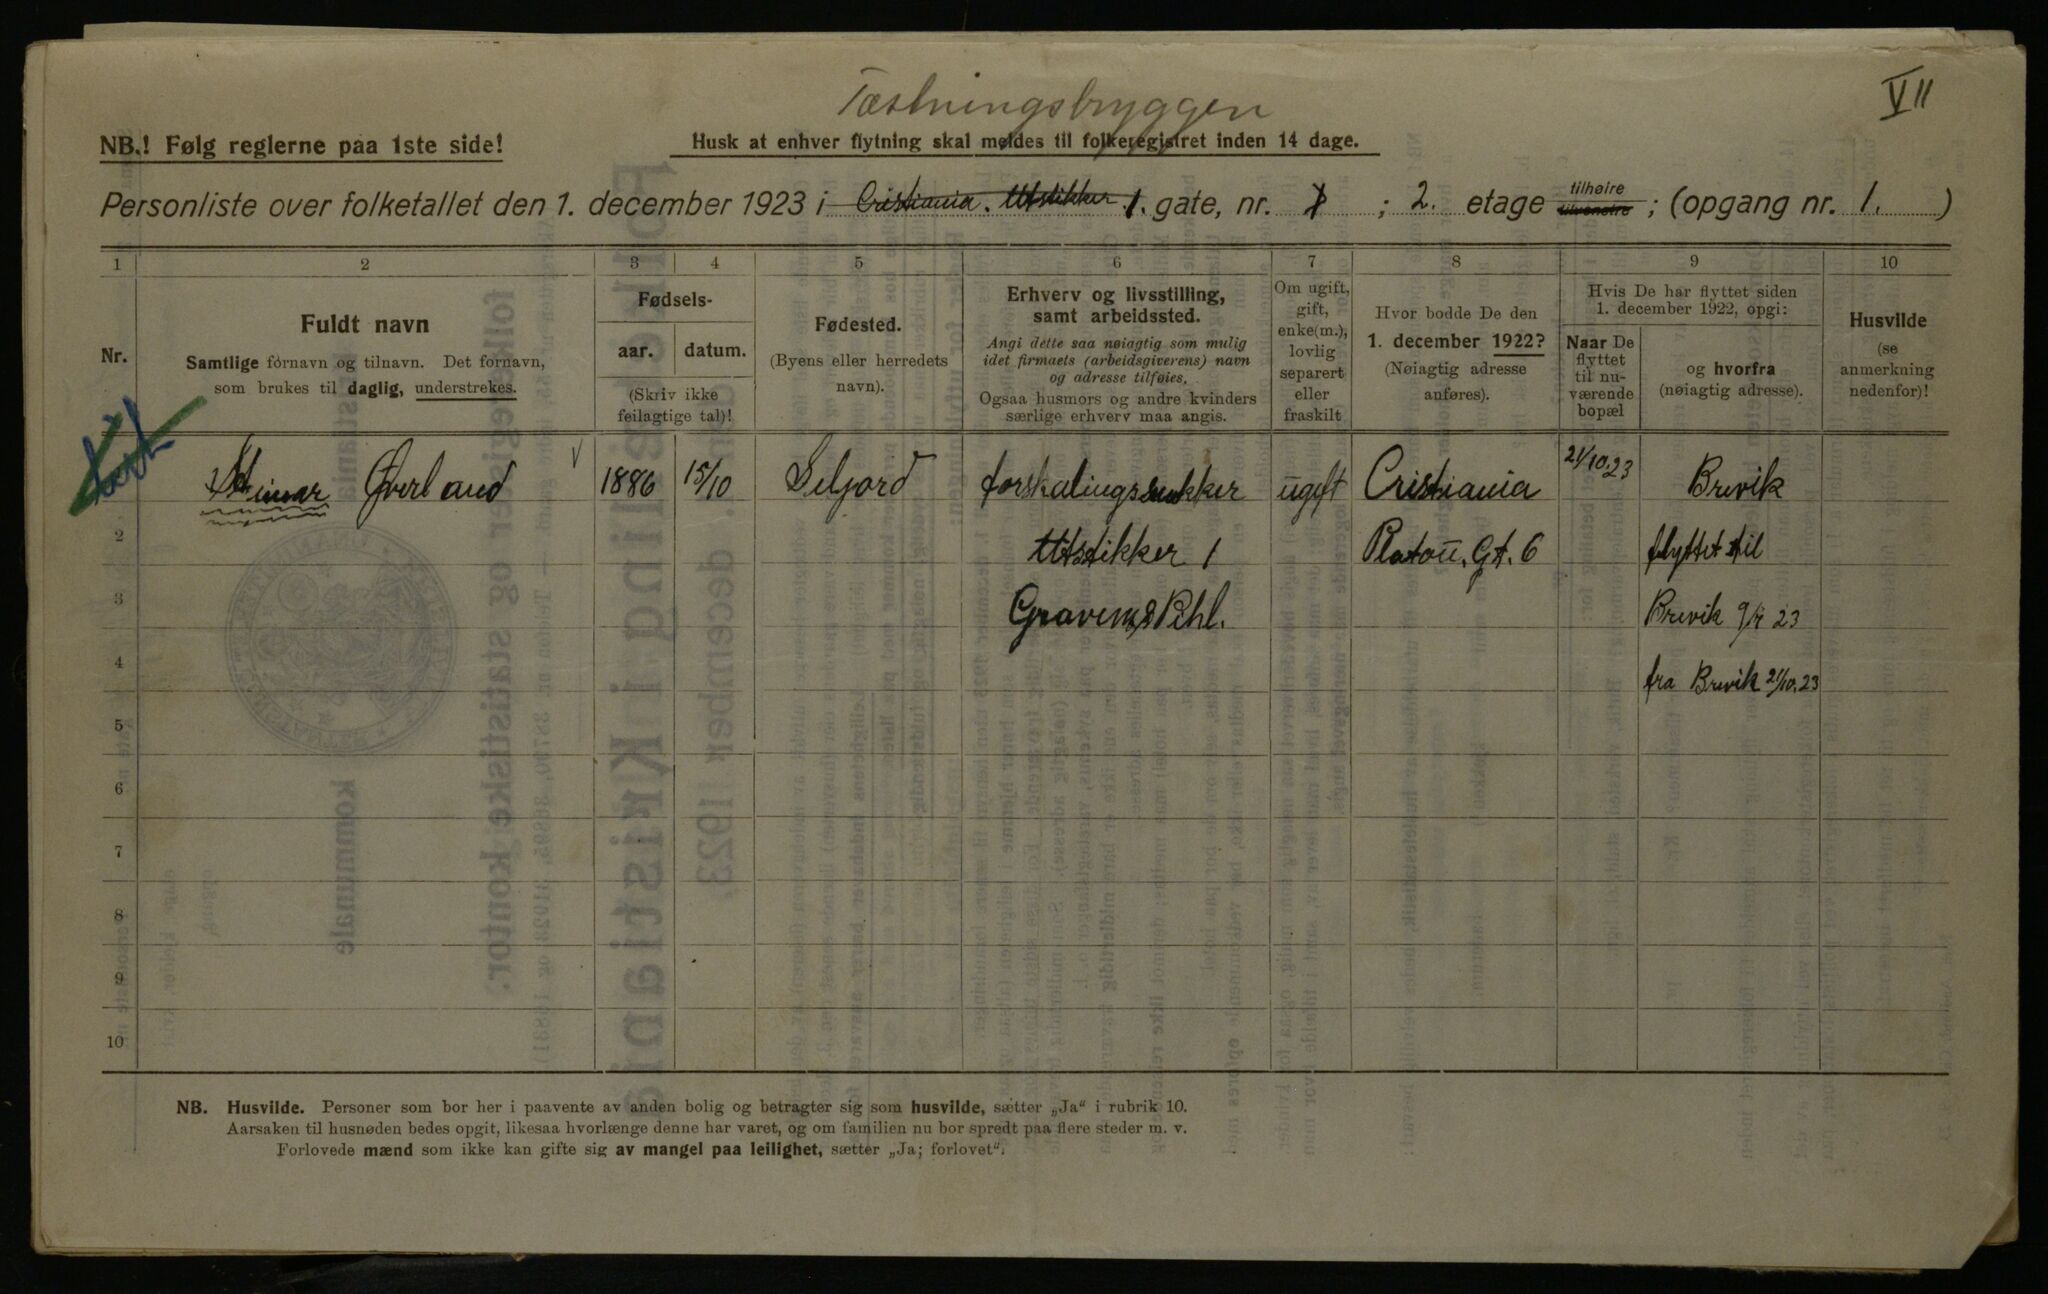 VII
Fæstningsbryggen
NB.! Følg reglerne paa 1ste side!
Husk at enhver flytning skal meldes til folkeregistret inden 14 dage.
Personliste over folketallet den 1. december 1923 i Cristiania. Utstikker 1. gate, nr. 1 ; 2. etage tilhøire tilvenstre ; (opgang nr. 1. )
1 2 3 4 5 6 7 8 9 10
Nr.
Fuldt navn
Samtlige fornavn og tilnavn. Det fornavn,
som brukes til daglig, understrekes.
Fødsels-
aar. datum.
(Skriv ikke
feilagtige tal)!
Fødested.
(Byens eller herredets
navn).
Erhverv og livsstilling,
samt arbeidssted.
Angi dette saa nøiagtig som mulig
idet firmaets (arbeidsgiverens) navn
og adresse tilføies.
Ogsaa husmors og andre kvinders
særlige erhverv maa angis.
Om ugift,
gift,
enke(m.),
lovlig
separert
eller
fraskilt
Hvor bodde De den
1. december 1922?
(Nøiagtig adresse
anføres).
Hvis De har flyttet siden
1. december 1922, opgi:
Naar De
flyttet
til nu-
værende
bopæl
og hvorfra
(nøiagtig adresse).
Husvilde
(se
anmerkning
nedenfor)!
Steinar Øverland V 1886 15/10 Seljord forskalingssnekker ugift Cristiania 21/10.23 Brevik
2 Utstikker 1 Platou. Gt. 6 flyttet til
3 Brevik 23
4 fra Brevik 21/10.23
5
6
7
8
9
10
NB. Husvilde. Personer som bor her i paavente av anden bolig og betragter sig som husvilde, sætter „Ja“ i rubrik 10.
Aarsaken til husnøden bedes opgit, likesaa hvorlænge denne har varet, og om familien nu bor spredt paa flere steder m. v.
Forlovede mænd som ikke kan gifte sig av mangel paa leilighet, sætter „Ja; forlovet“.